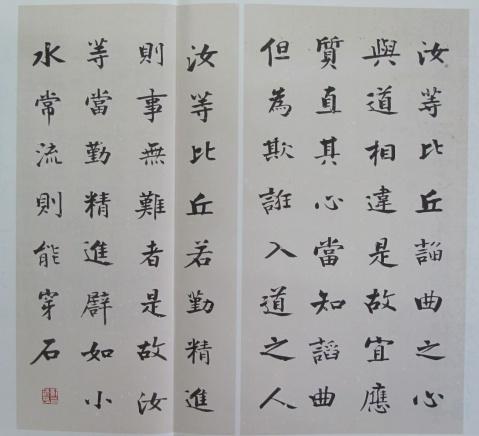 汝等比丘諂曲之心
與道相違是故宜應
質直其心當知諂曲
但為欺誑入道之人
汝等比丘若勤精進
則事無難者是故汝
等當勤精進辟如小
水常流則能穿石